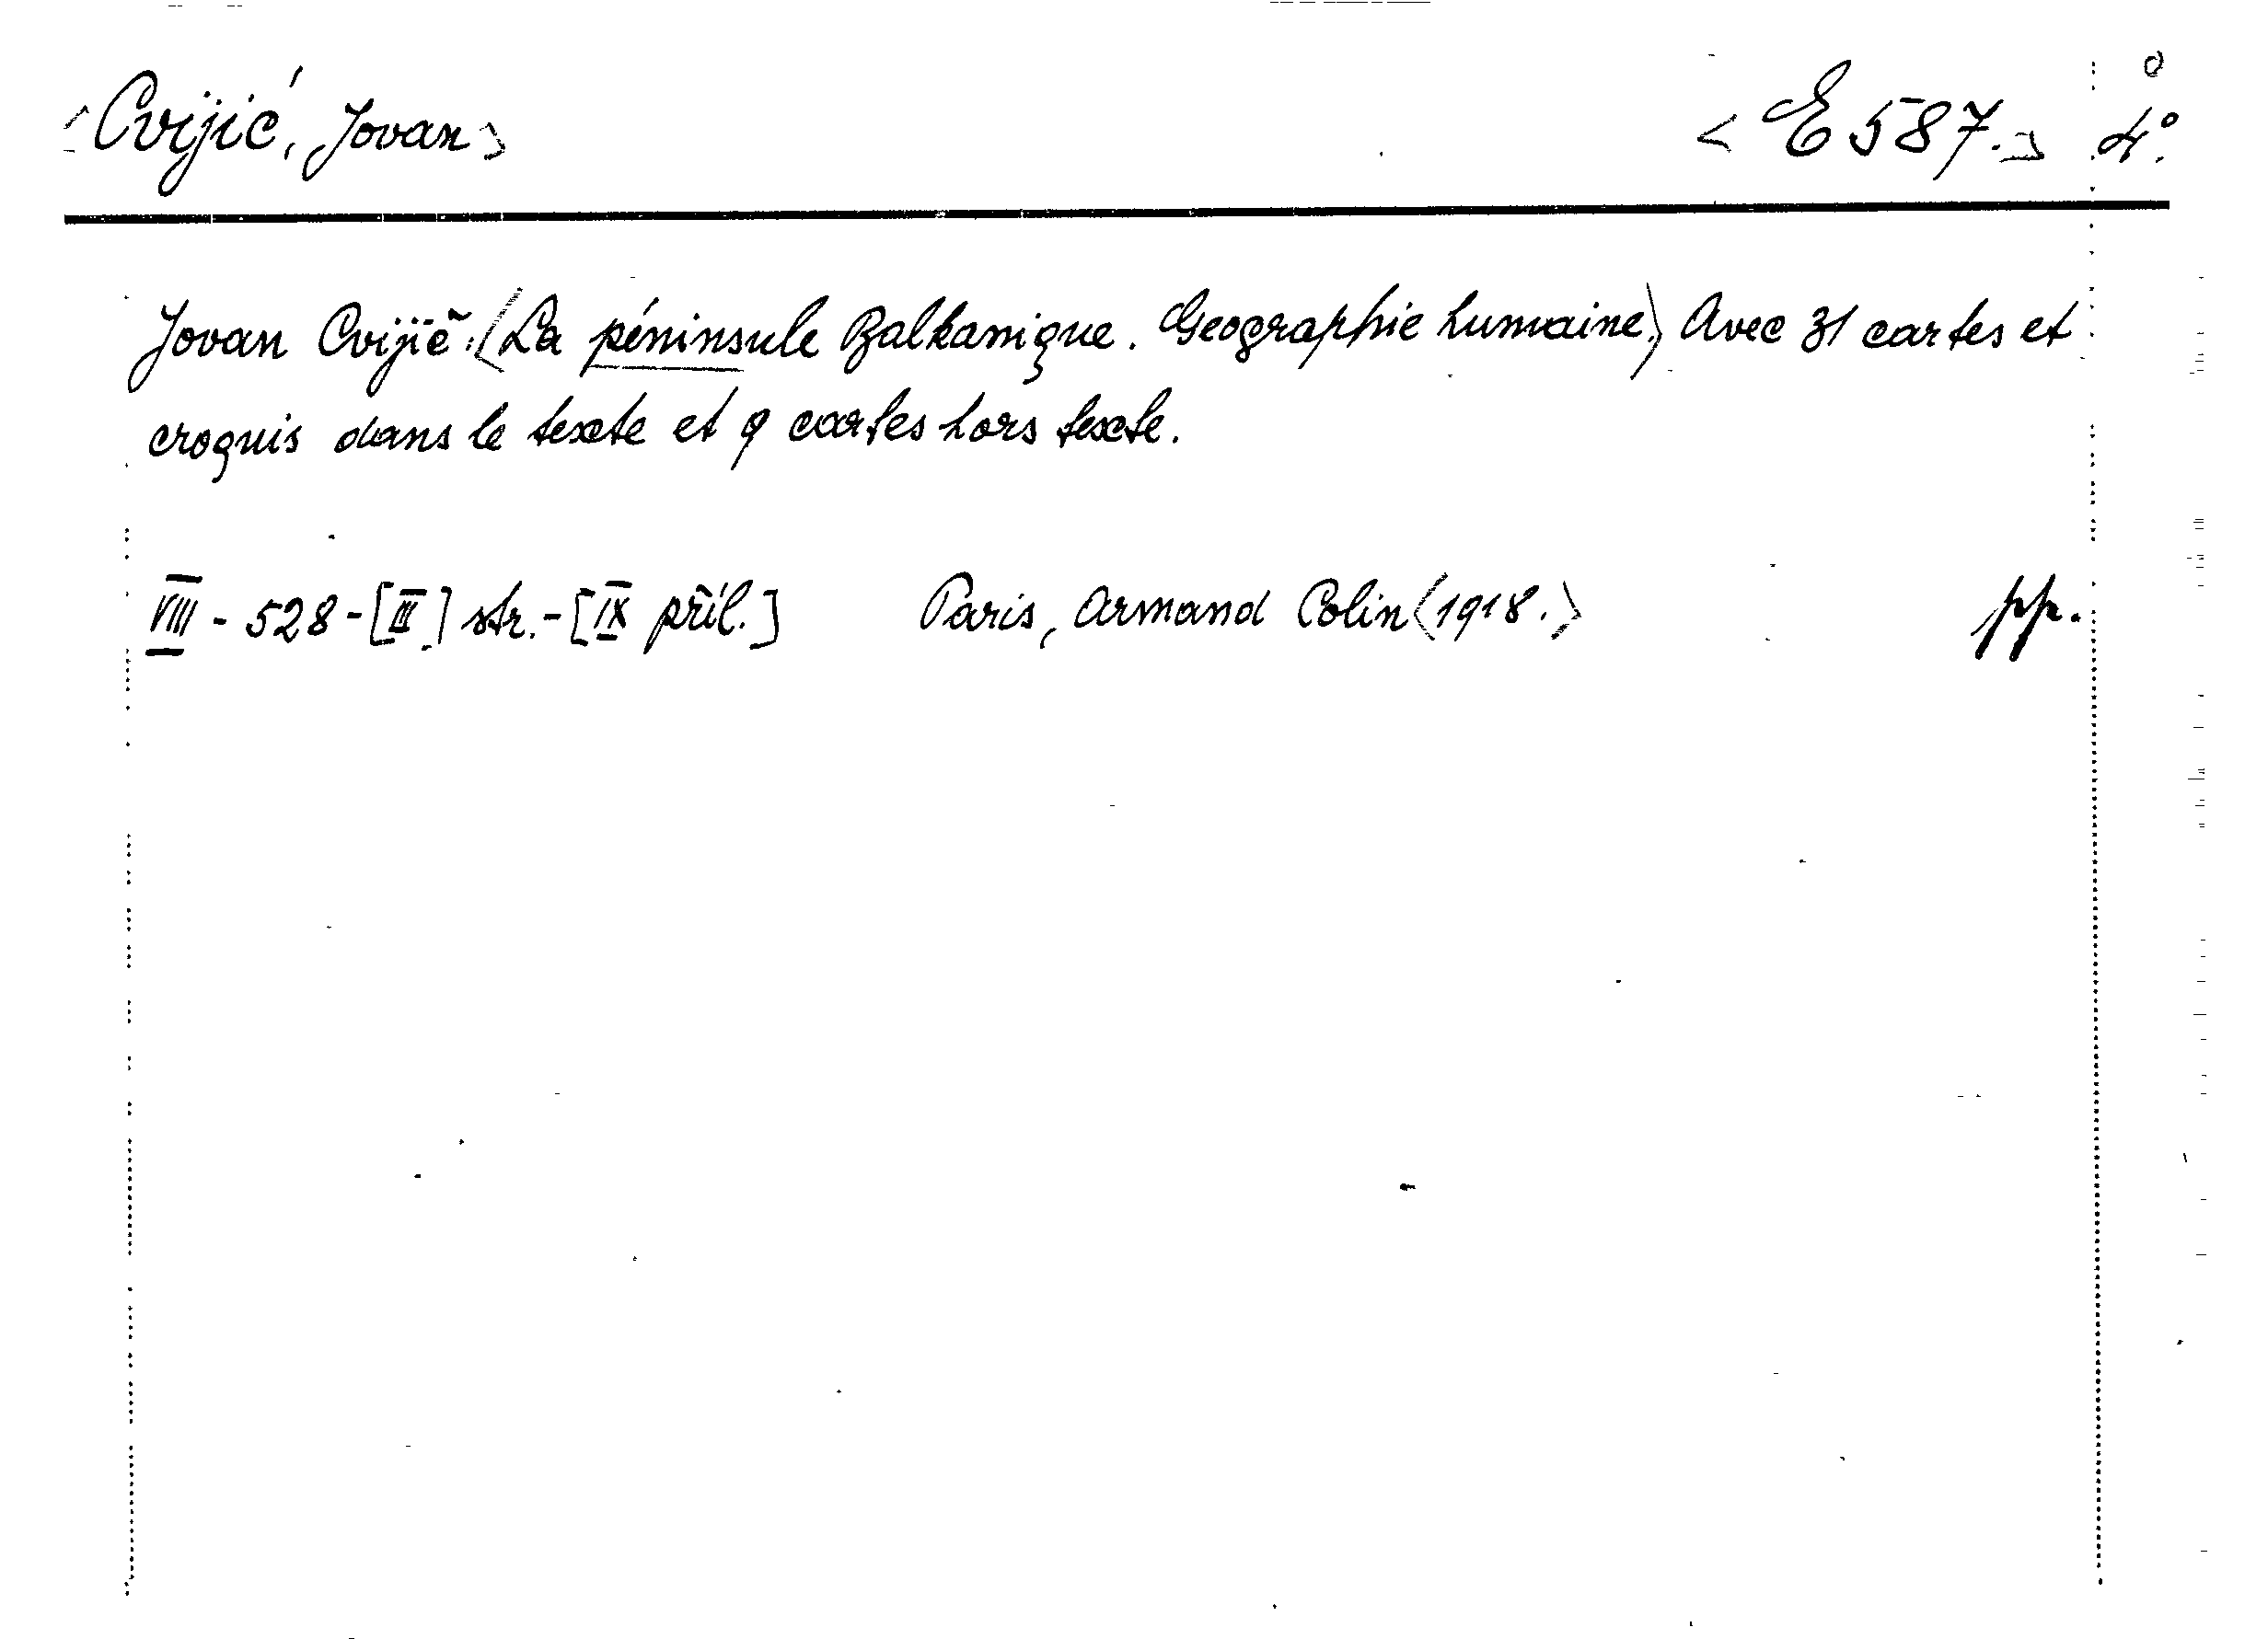 <Cvijić, Jovan> <E 587.> 4°.
Jovan Cvijič: <La péninsule Balkanique. Geographie humaine.> Avec 31 cartes et
croquis dans le texte et 9 cartes hors texte.
VIII - 528 - [III] str. - [IX příl.] Paris, Armand Colin <1918.> pp.